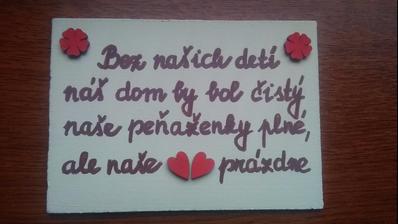 Bez našich detí
náš dom by bol čistý
naše peňaženky plné,
ale naše prázdne